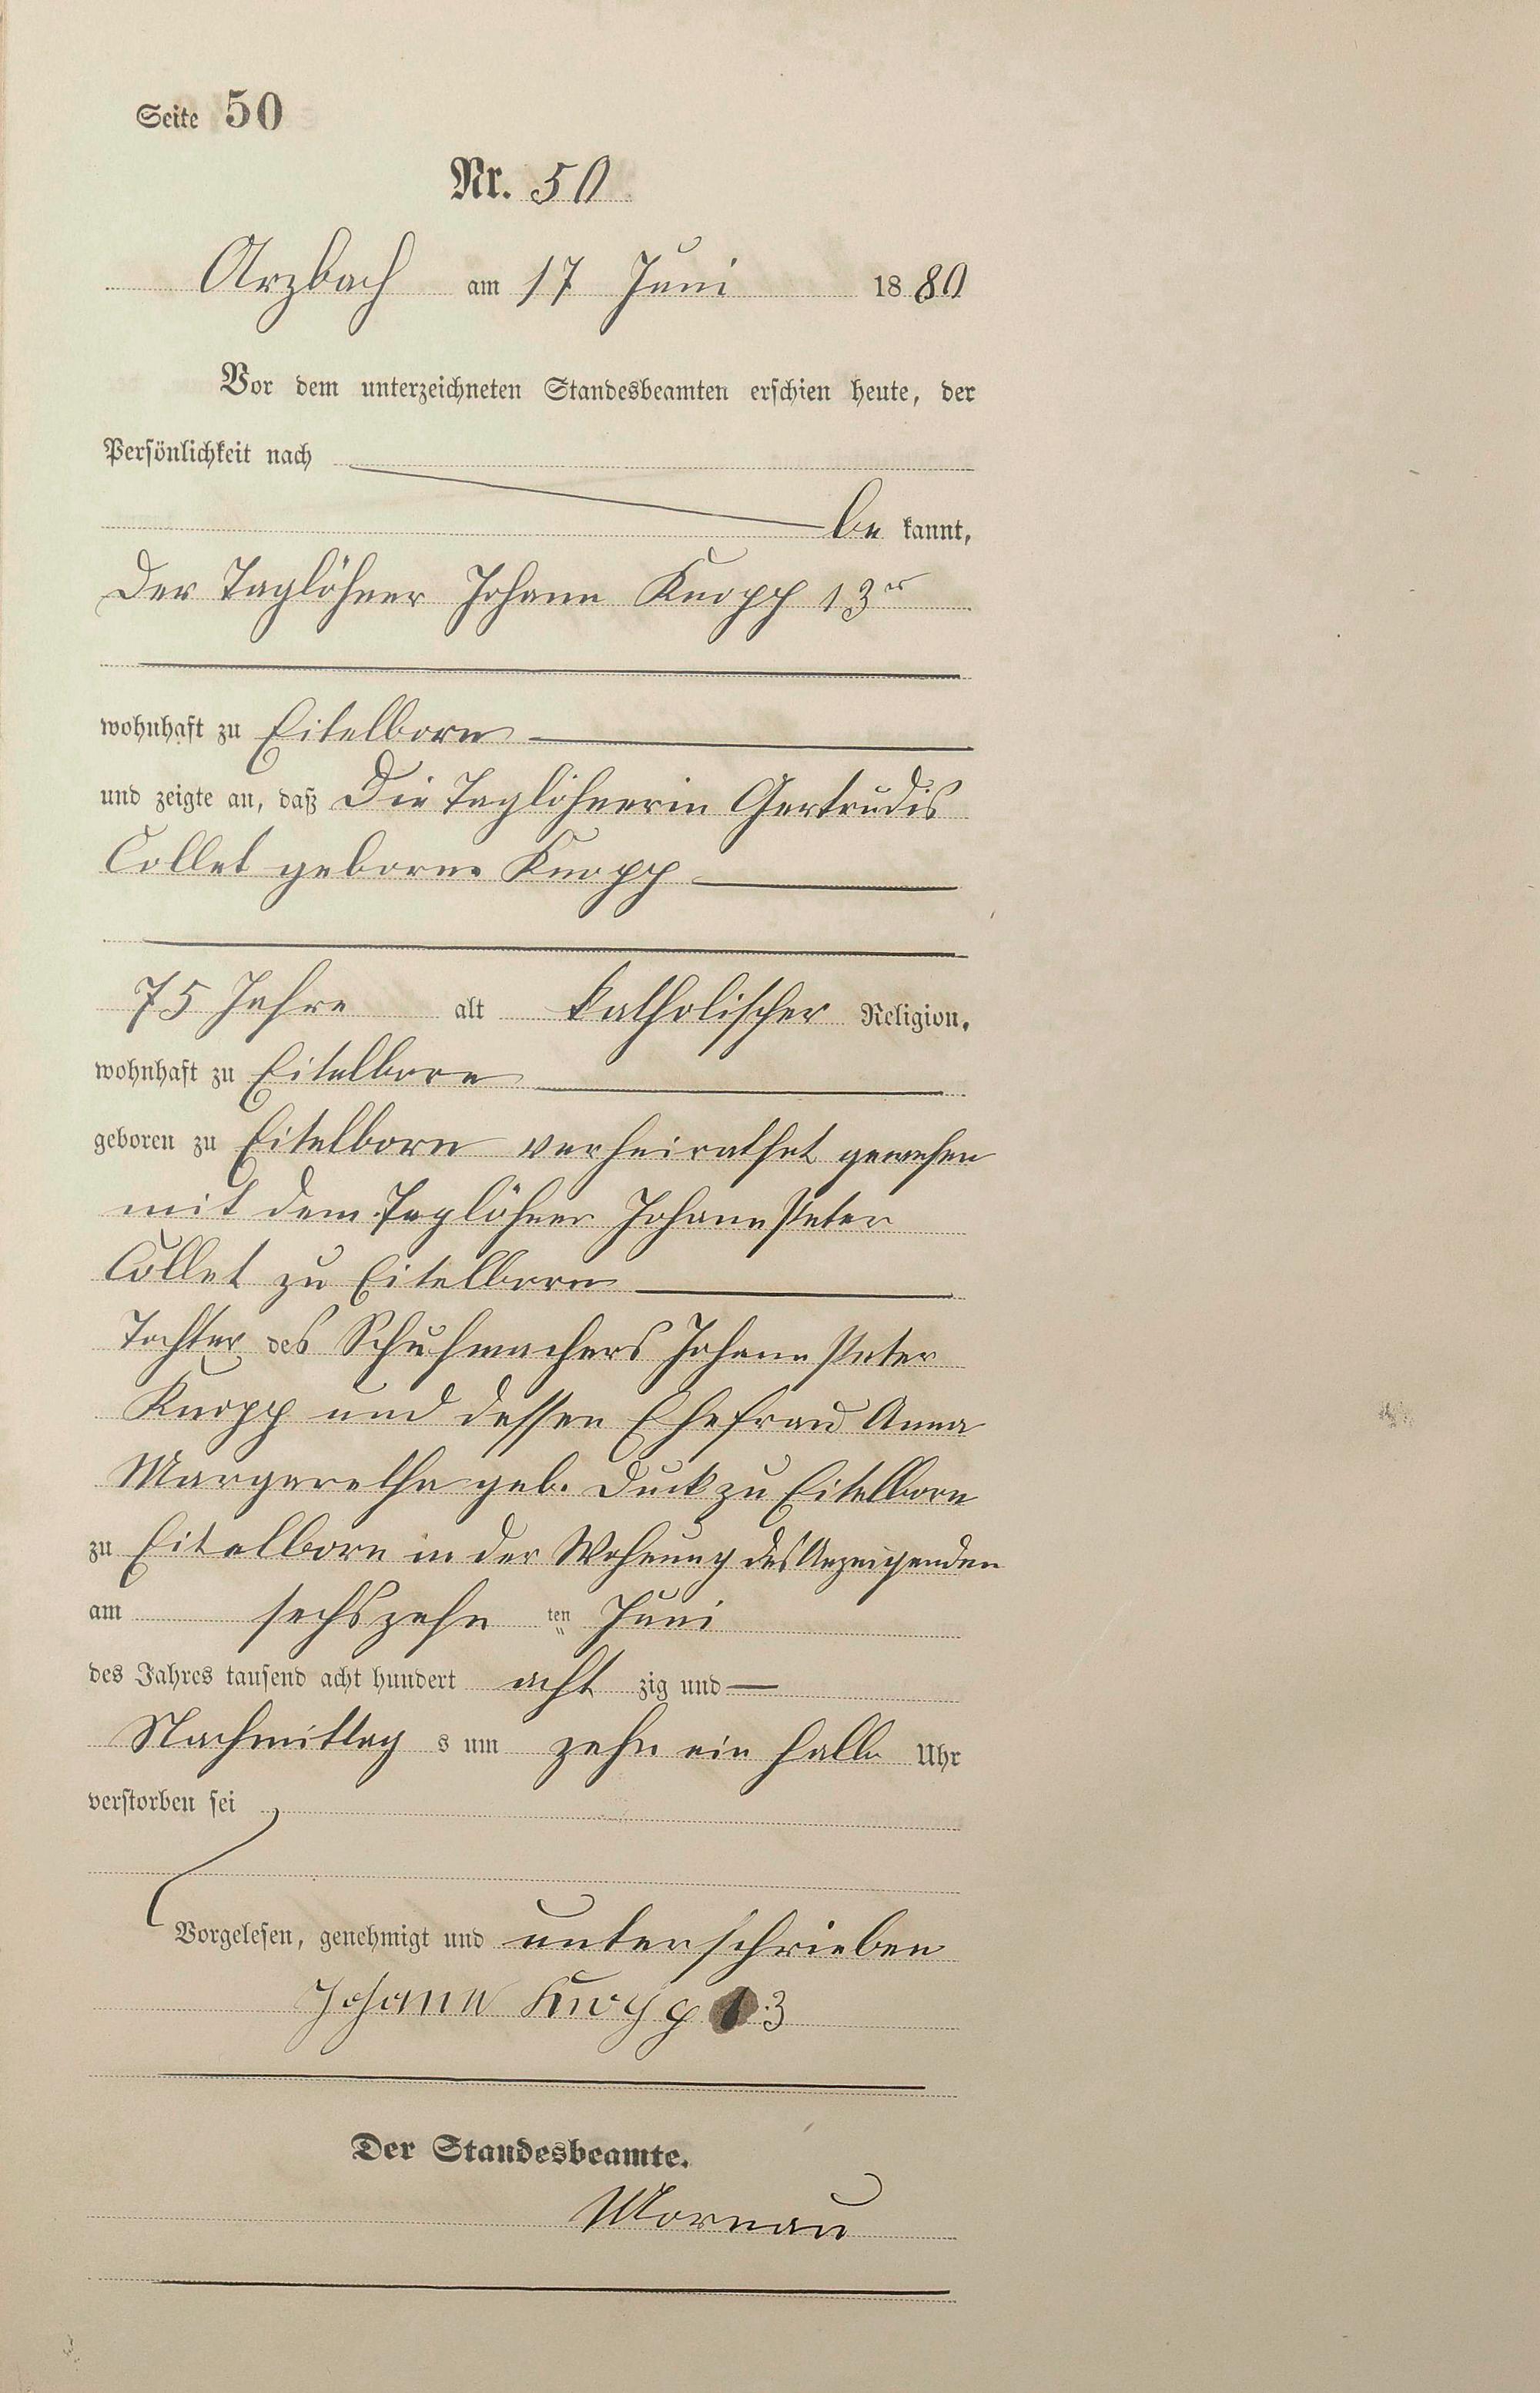 Seite 50
Nr. 50
Arzbach am 17 Juni 1880
Vor dem unterzeichneten Standesbeamten erschien heute, der
Persönlichkeit nach
be kannt,
der Taglöhner Johann Knopp 13r
wohnhaft zu Eitelborn
und zeigte an, daß Die Taglöhnerin Gertrudis
Collet geborne Knopp
75 Jahre alt katholischer Religion,
wohnhaft zu Eitelborn
geboren zu Eitelborn verheirathet gewesen
mit dem Taglöhner Johann Peter
Collet zu Eitelborn
Tochter des Schuhmachers Johann Peter
Knopp und dessen Ehefrau Anna
Margaretha geb. Duck zu Eitelborn
zu Eitelborn in der Wohnung des Anzeigenden
am sechszehn ten Juni
des Jahres tausend acht hundert acht zig und
Nachmittag s um zehn ein halb Uhr
verstorben sei
Vorgelesen, genehmigt und unterschrieben
Johann Knopp 13
Der Standesbeamte.
Mornau